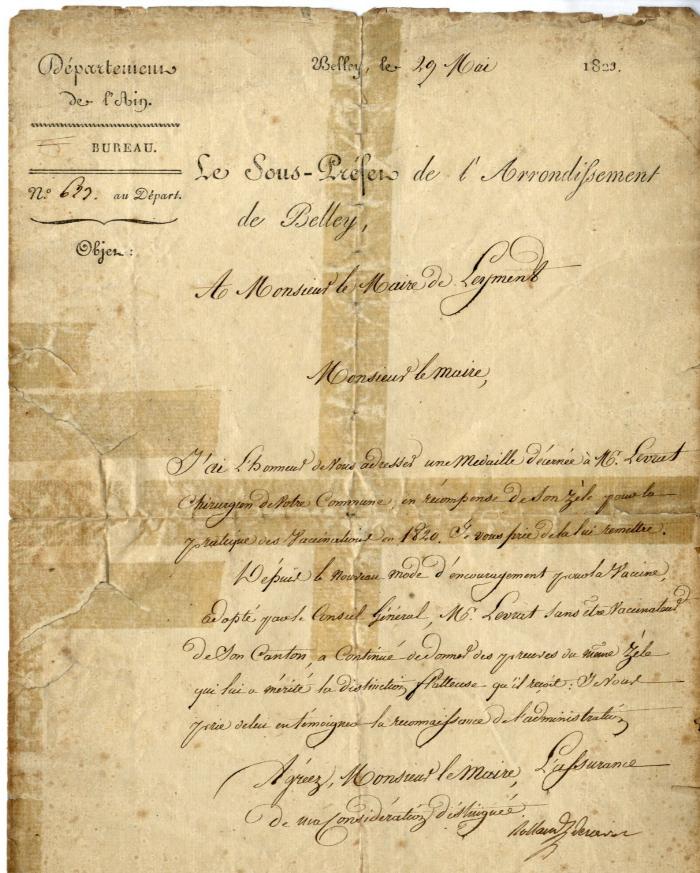 Département
de l'Ain.
BUREAU.
N.º 633. au Départ.
Objet :
Belley, le 29 Mai 1823.
Le Sous-Préfet de l'Arrondissement
de Belley,
A Monsieur le Maire de Leyment
Monsieur le maire,
J'ai L'honneur de Vous adresser une Medaille décernée à Mr. Levrat
Chirurgien de Votre Commune, en récompense de Son Zèle pour la
pratique des Vaccinations en 1820. Je vous prie de la lui remettre.
Depuis le nouveau mode d'encouragement pour la Vaccine,
adopté par le Conseil Général, Mr. Levrat sans être Vaccinateur
de Son Canton, a Continué de donner des preuves du même Zèle
qui lui a mérité la distinction flatteuse qu'il reçoit ; Je Vous
prie de lui en témoigner la reconnaissance de l'administration
Agréez, Monsieur le Maire, L'assurance
de ma Considération distinguée